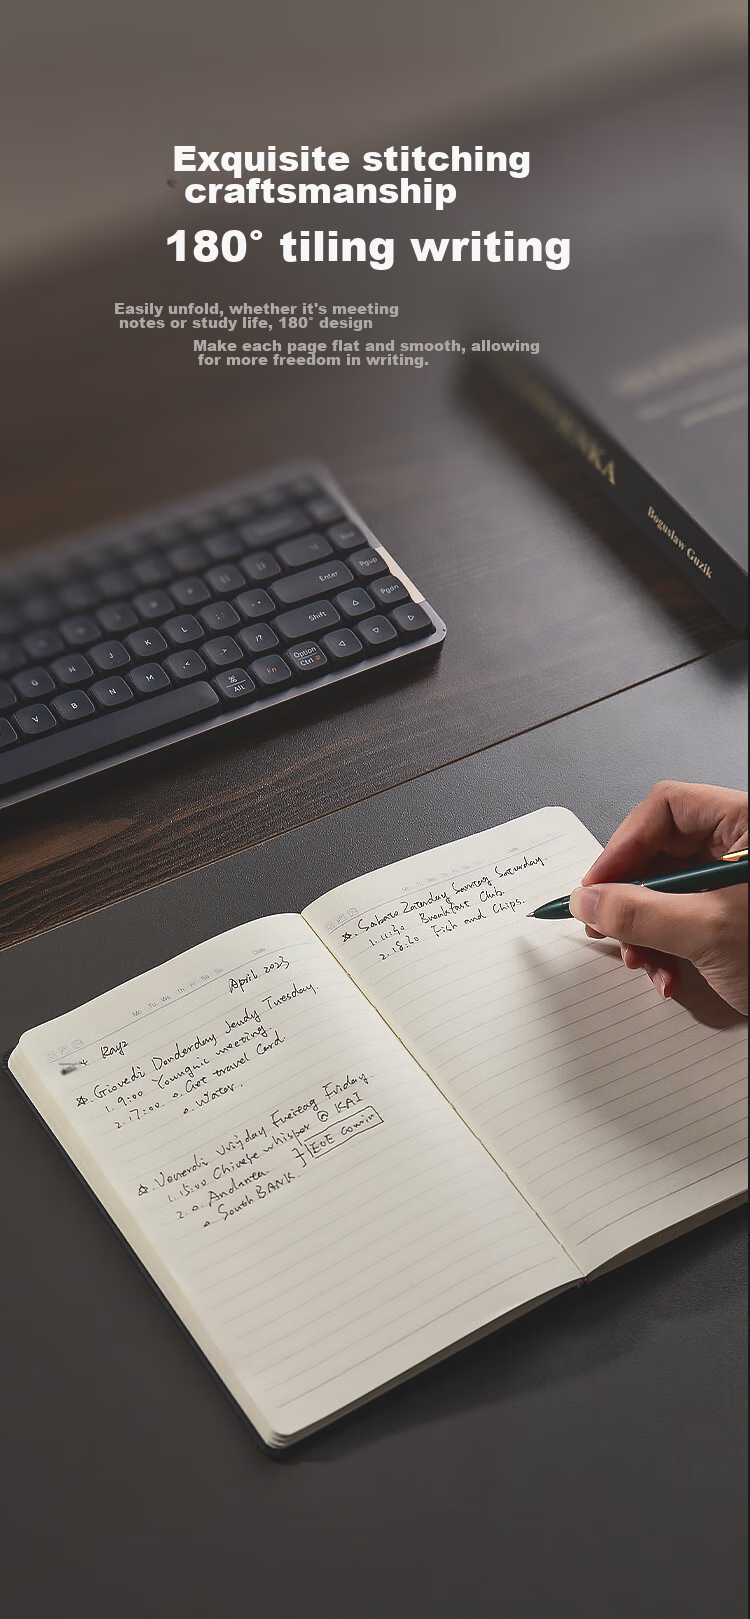 Exquisite stitching
craftsmanship
180° tiling writing
Easily unfold, whether it's meeting
notes or study life, 180° design
Make each page flat and smooth, allowing
for more freedom in writing.
Boguslaw Guzik
Enter
PgUp
Shift
PgDn
G H J K L
V B N M
Alt
Fn
Option
Ctrl
Date
Mo Tu We Th Fr Sa Su
April 2023
☆. Giovedi Donderday Jeudy Tuesday.
1. 9:00 Youngnic meeting.
2. 17:00 Get travel Card.
Water.
☆. Venerdi Vrijday Freitag Friday.
1. 15:00 Chinese whisper @ KAI
2. Andanea
South BANK
☆. Sabato Zaterday Samtag Saturday.
1. 11:30 Breakfast Club.
2. 18:30 Fish and Chips.